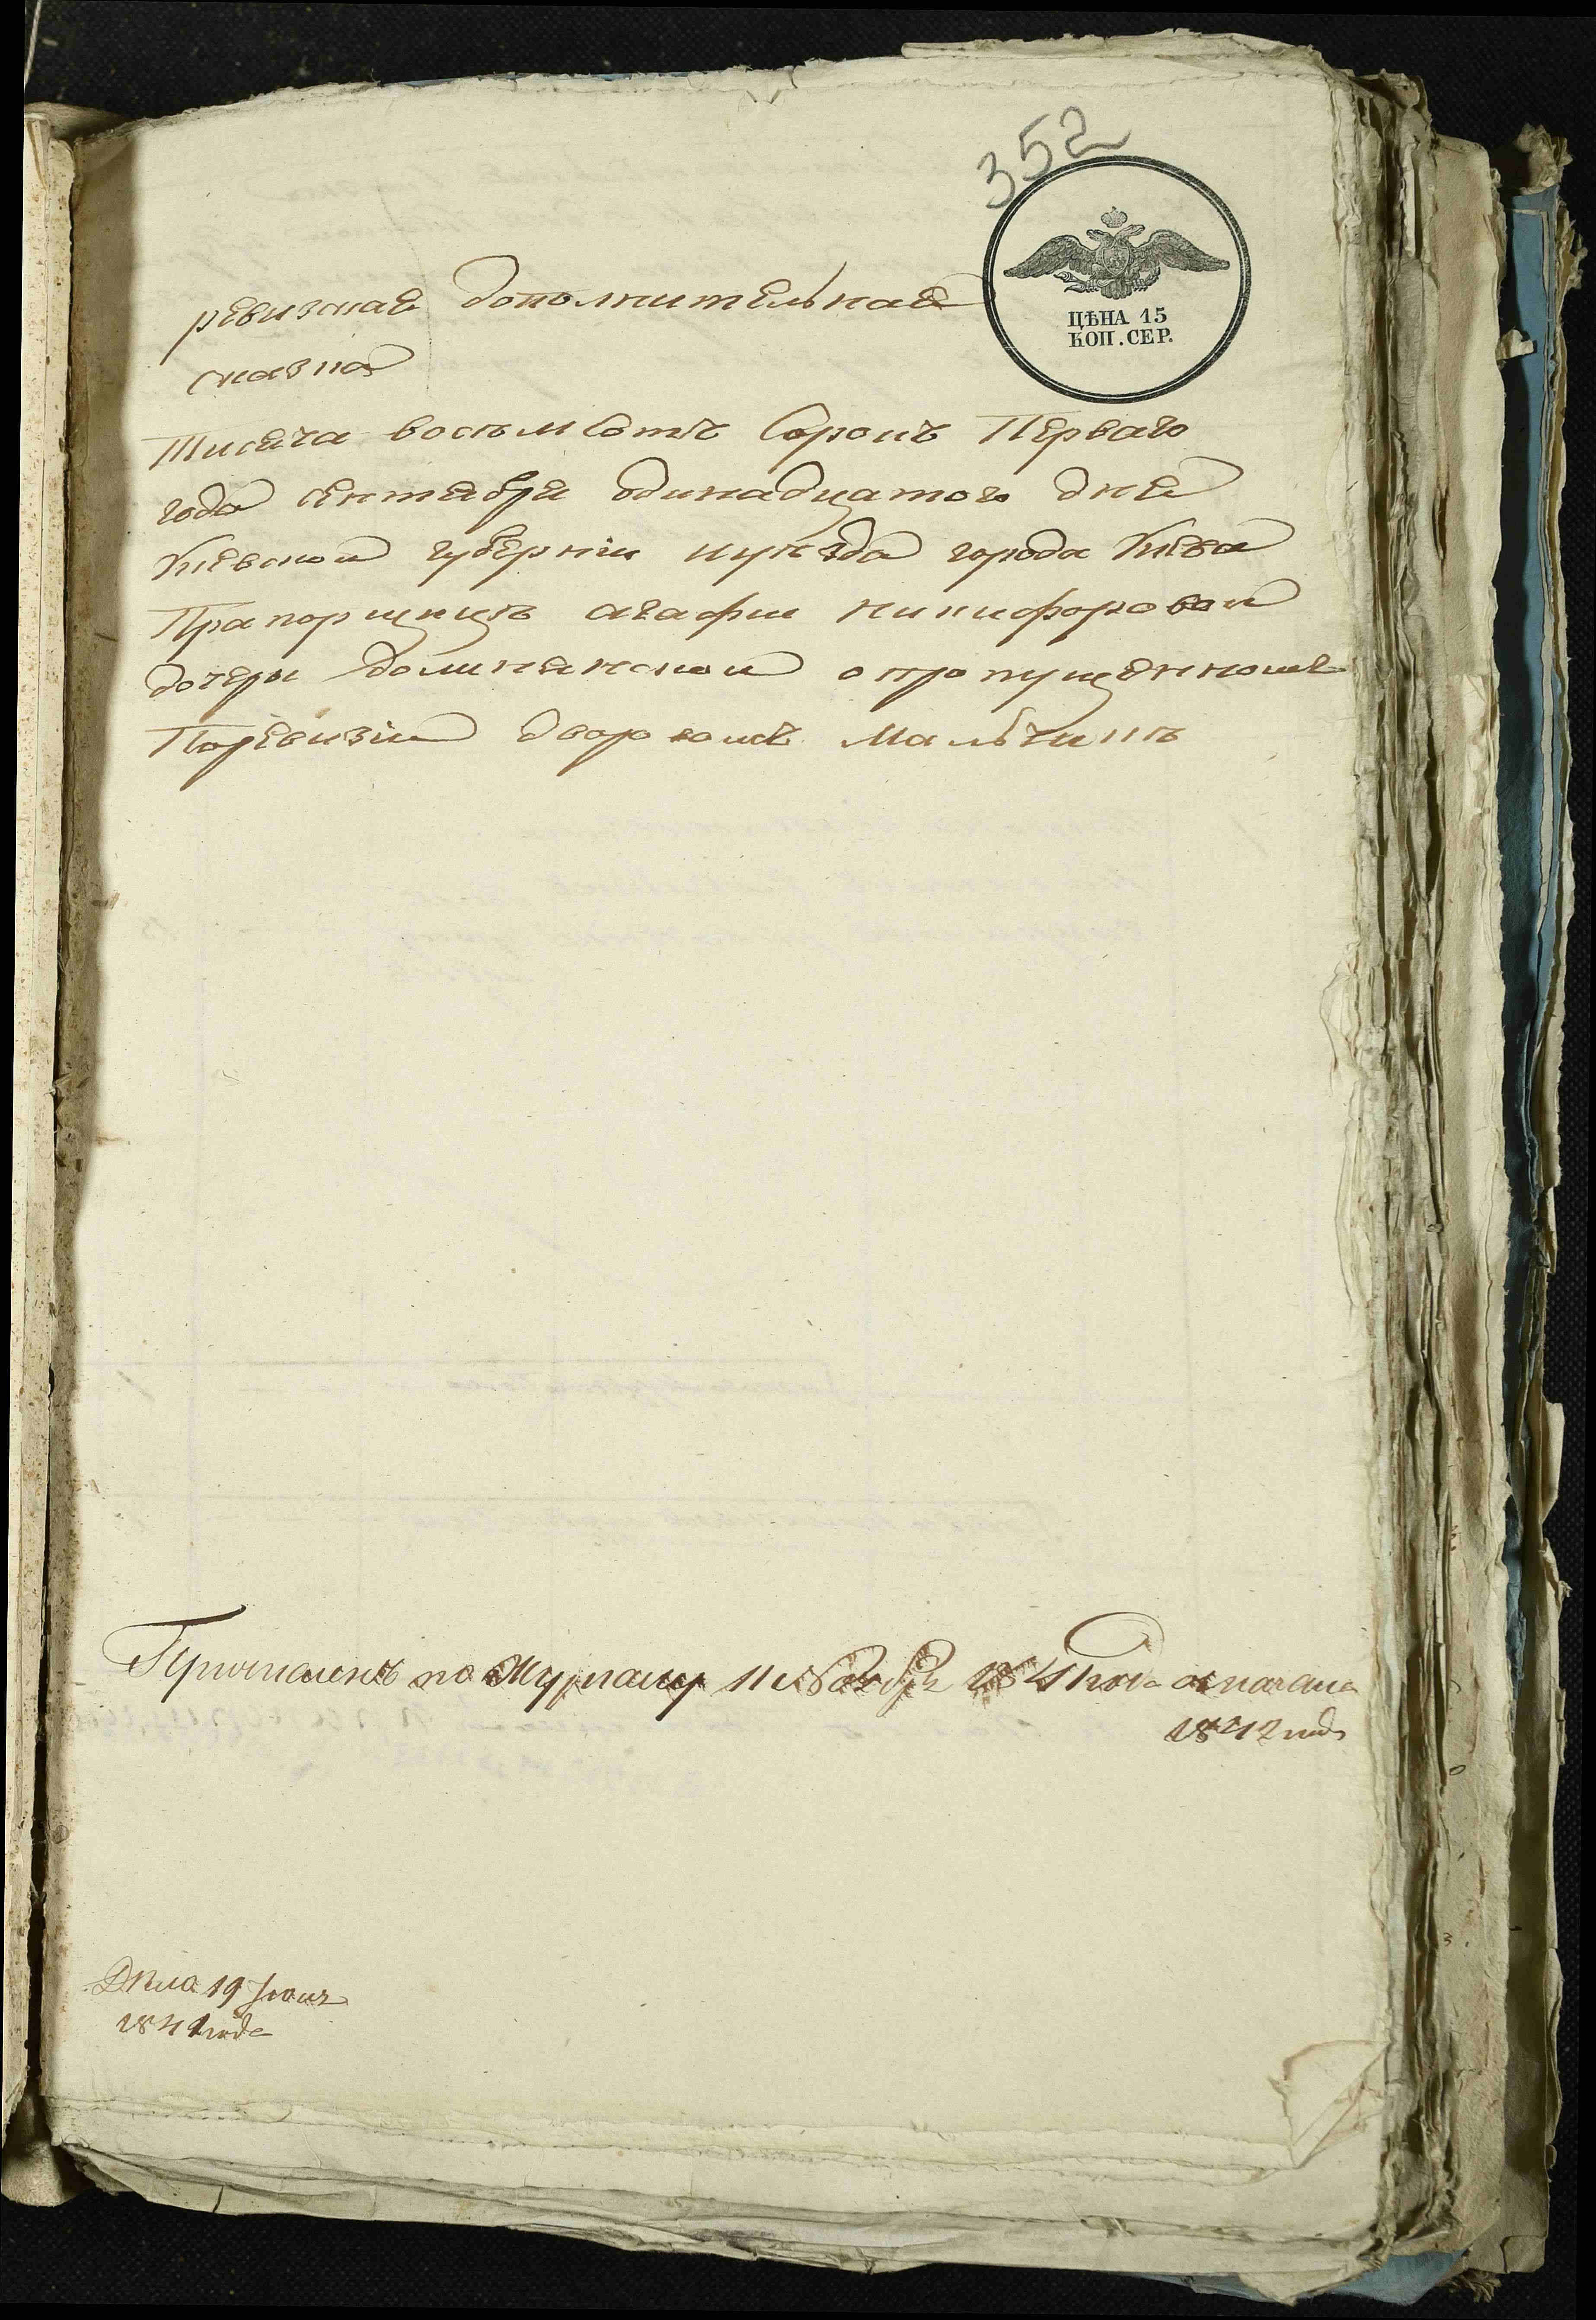 352
ЦѢНА 15
КОП. СЕР.
ревизская дополнительная
сказка
Тисяча восъмсотъ Сорокъ Перваго
года сентября одинадцатого дня
Киевской губернiи иуезда города Киева
Прапорщицъ агафи никифоровой
дочери долинянской о пропущенномъ
Поревизiи дворовомъ Мальчикъ
по Журналу 11 Ноября 1841 года
1842 года
Дѣла 19
1841 года